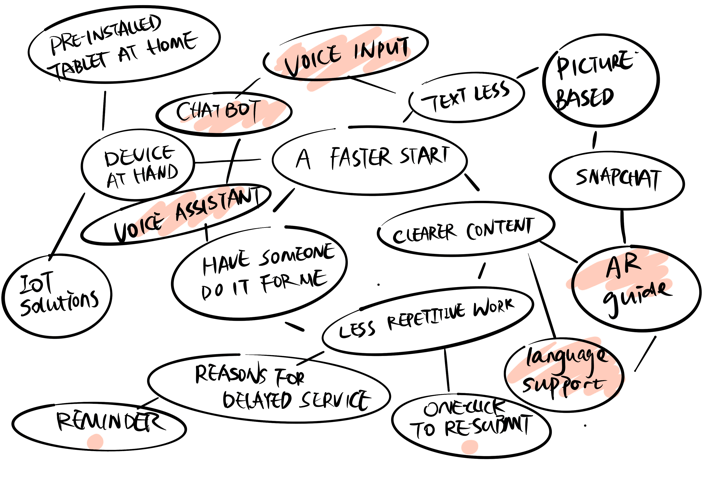 PRE-INSTALLED
TABLET AT HOME
VOICE INPUT
TEXT LESS
PICTURE-
BASED
CHATBOT
DEVICE
AT HAND
A FASTER START
SNAPCHAT
VOICE ASSISTANT
CLEARER CONTENT
HAVE SOMEONE
DO IT FOR ME
IoT
solutions
AR
guide
LESS REPETITIVE WORK
language
support
REASONS FOR
DELAYED SERVICE
REMINDER
ONE-CLICK
TO RE-SUBMIT